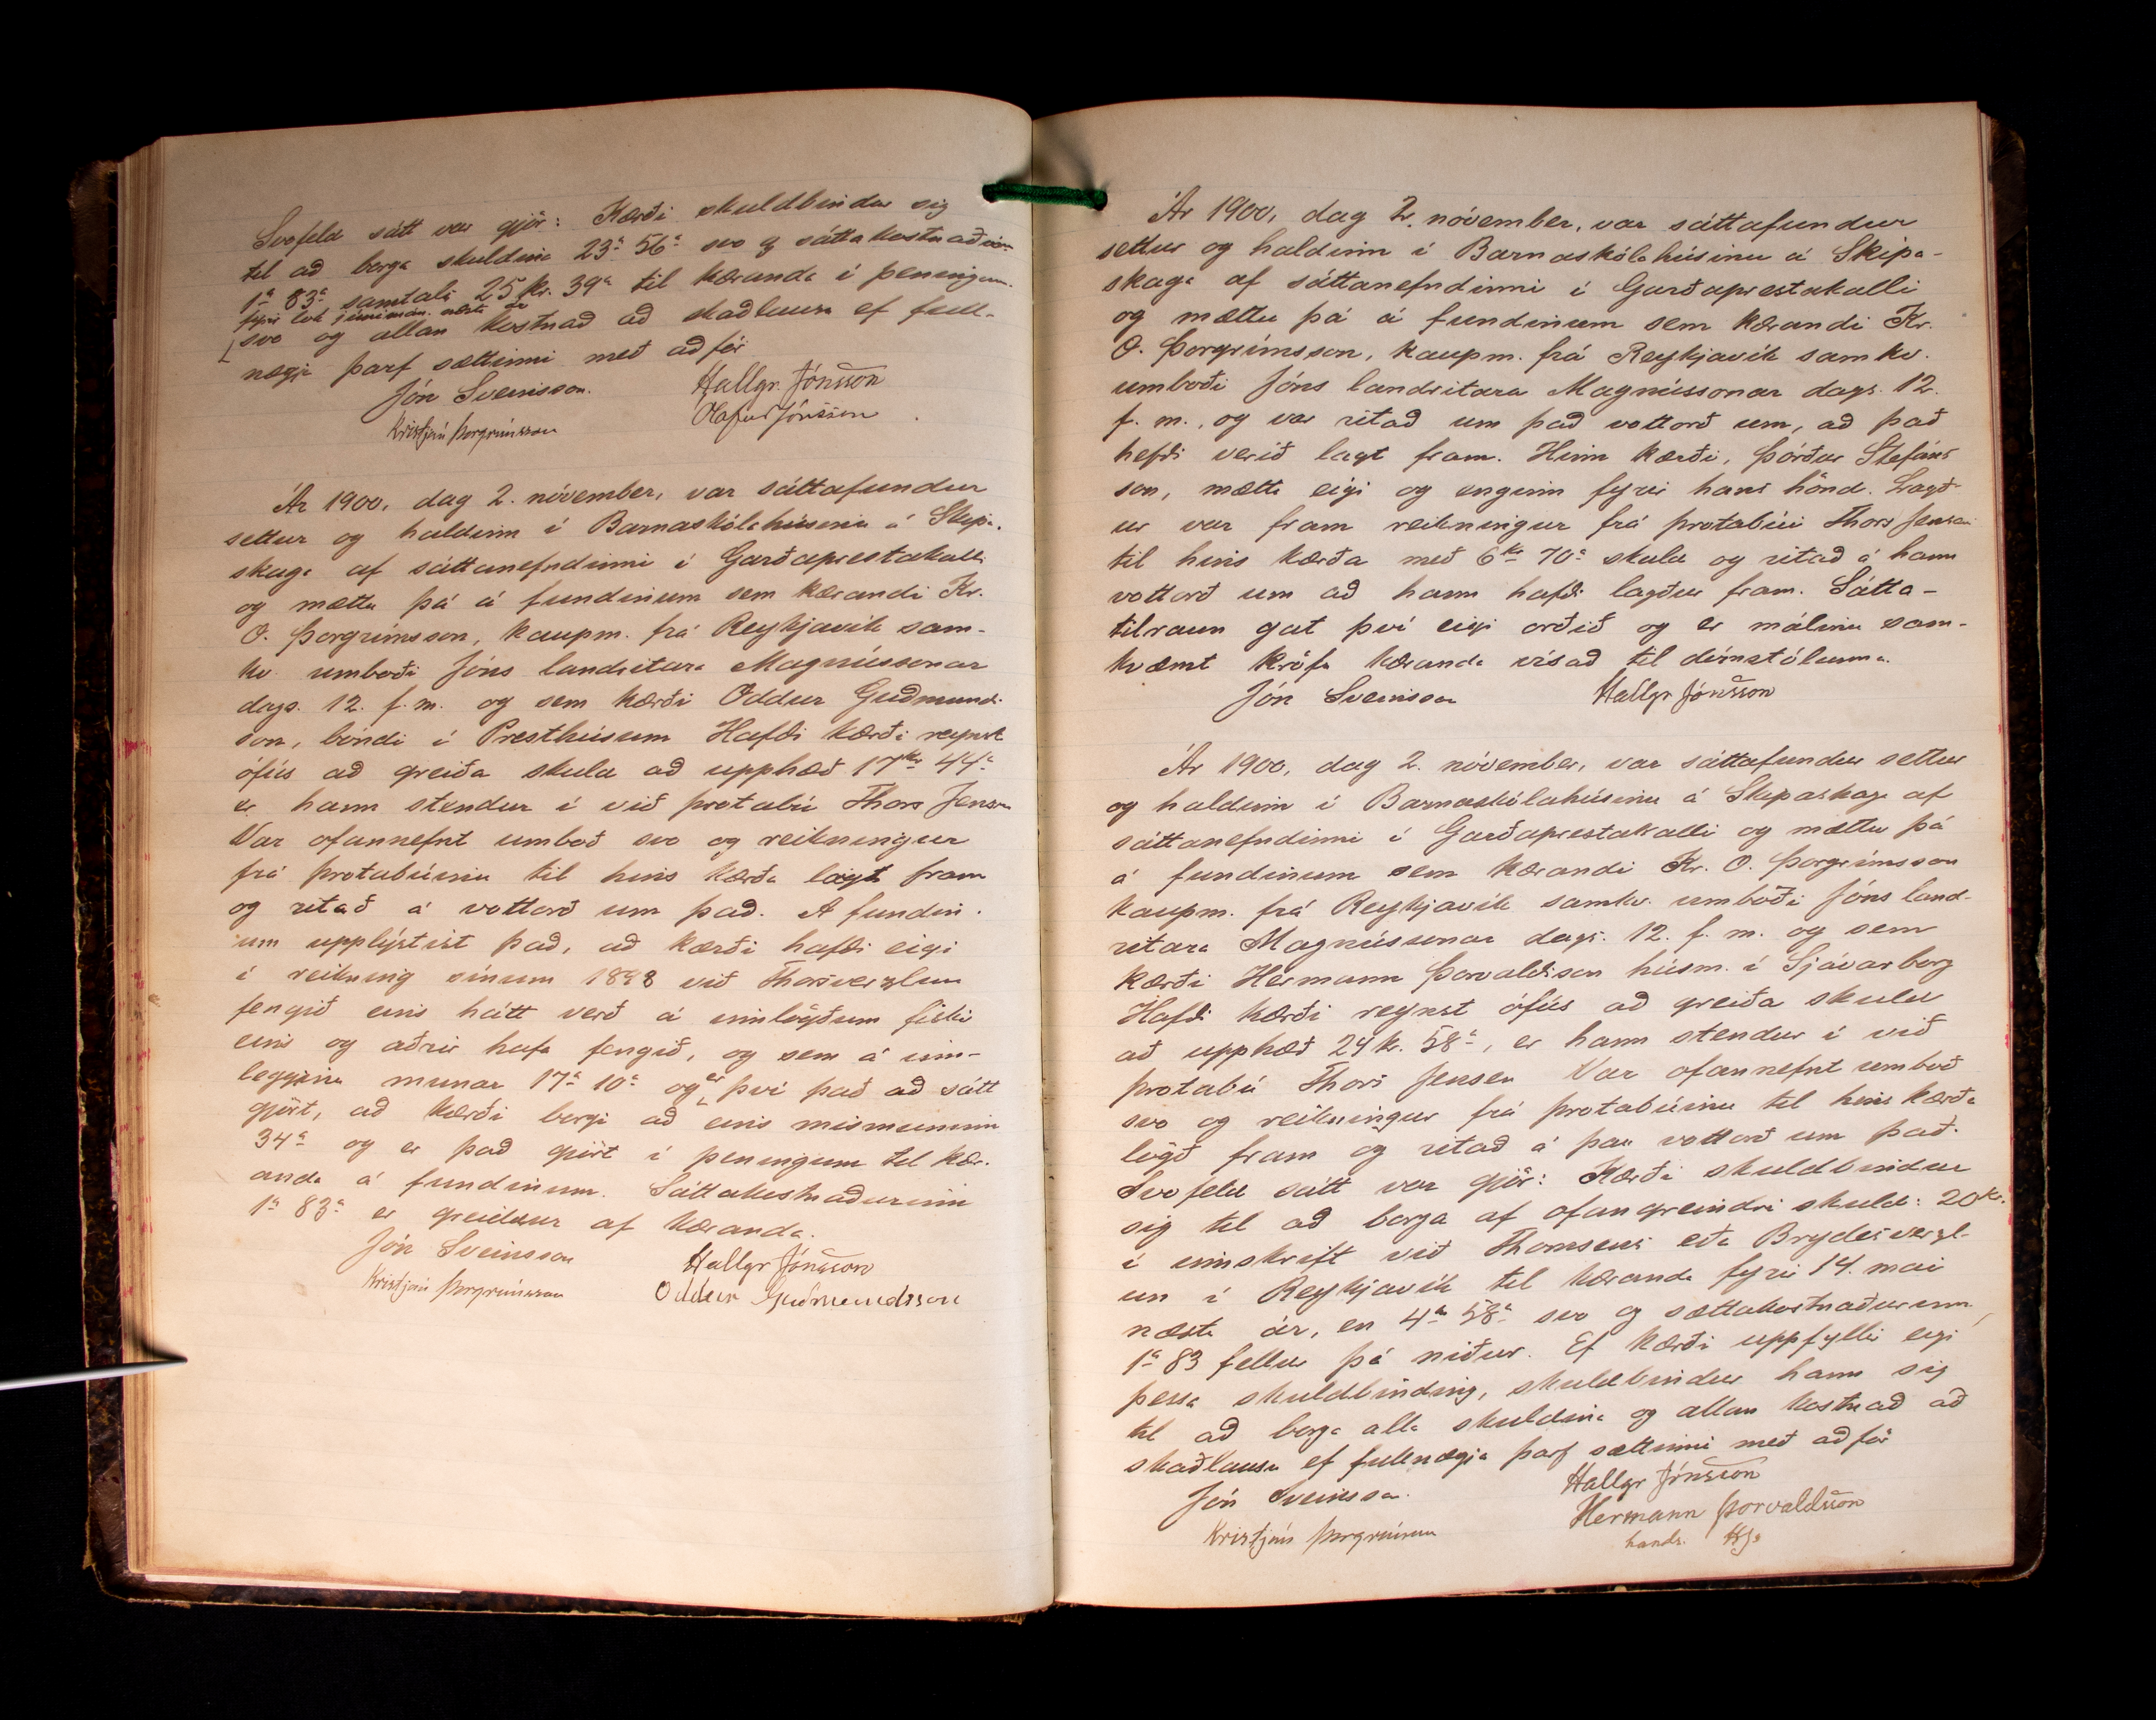 Svofeld sátt var gjör: Kærði skuldbindur sig
til að borga skuldina 23 56 svo og sáttakostnaðinn
1 83 samtals 25 kr. 39a til kæranda í peningum
fyrir lok júnímán. næsta ár
svo og allan kostnað að skaðlausu ef full-
nægja þarf sættinni með aðför
Jón Sveinsson. Hallgr. Jónsson
Kristján Þorgrímsson Ólafur Jónsson
Ár 1900, dag 2. nóvember, var sáttafundur
settur og haldinn í Barnaskólahúsinu á Skipa-
skaga af sáttanefndinni í Garðaprestakalli
og mættu þá á fundinum sem kærandi Kr.
Ó. Þorgrímsson, kaupm. frá Reykjavík sam-
kv umboði Jóns landritara Magnússonar
dags. 12. f. m. og sem kærði Oddur Guðmunds-
son, bóndi í Presthúsum Hafði kærði reynst
ófús að greiða skuld að upphæð 17kr 44a
er hann stendur í við þrotabú Thors Jensen
Var ofannefnt umboð svo og reikningur
frá þrotabúinu til hins kærða lagt fram
og ritað á vottorð um það. Á fundin-
um upplýstist það, að kærði hafði eigi
í reikning sínum 1898 við Thorsverzlun
fengið eins hátt verð á innlögðum fiski
eins og aðrir hafa fengið, og sem á inn-
leggjinu munar 17 10 og er því það að sátt
gjört, að kærði borgi að eins mismuninn
34a og er það gjört í peningum til kær-
anda á fundinum. Sáttakostnaðurinn
1 83 er greiddur af kæranda.
Jón Sveinsson Hallgr Jónsson
Kristján Þorgrímsson Oddur Guðmundsson
Ár 1900, dag 2. nóvember, var sáttafundur
settur og haldinn í Barnaskólahúsinu á Skipa-
skaga af sáttanefndinni í Garðaprestakalli
og mættu þá á fundinum sem kærandi Kr.
Ó. Þorgrímsson, kaupm. frá Reykjavík samkv.
umboði Jóns landritara Magnússonar dags. 12.
f. m., og var ritað um það vottorð um, að það
hefði verið lagt fram. Hinn kærði, Þórður Stefáns
son, mætti eigi og enginn fyrir hans hönd. Lagð-
ur var fram reikningur frá þrotabúi Thors Jensen
til hins kærða með 6kr 70a skuld og ritað á hann
vottorð um að hann hafði lagður fram. Sátta-
tilraun gat því eigi orðið og er málinu sam-
kvæmt kröfu kæranda vísað til dómstólanna.
Jón Sveinsson Hallgr Jónsson
Ár 1900, dag 2. nóvember, var sáttafundur settur
og haldinn í Barnaskólahúsinu á Skipaskaga af
sáttanefndinni í Garðaprestakalli og mættu þá
á fundinum sem kærandi Kr. Ó. Þorgrímsson
kaupm. frá Reykjavík samkv. umboði Jóns land-
ritara Magnússonar dags. 12. f. m. og sem
kærði Hermann Þorvaldsson húsm. í Sjávarborg
Hafði kærði reynst ófús að greiða skuld
að upphæð 24 kr. 58a, er hann stendur í við
þrotabú Thors Jensen Var ofannefnt umboð
svo og reikningur frá þrotabúinu til hins kærða
lögð fram og ritað á þau vottorð um það.
Svofeld sátt var gjör: Kærði skuldbindur
sig til að borga af ofangreindri skuld: 20kr.
í innskrift við Thomsens eða Brydesverzl-
un í Reykjavík til kæranda fyrir 14. maí
næsta ár, en 4 58 svo og sættakostnaðurinn
1 83 fellur þá niður. Ef kærði uppfyllir eigi
þessa skuldbinding, skuldbindur hann sig
til að borga alla skuldina og allan kostnað að
skaðlausu ef fullnægja þarf sættinni með aðför
Jón Sveinsson. Hallgr Jónsson
Kristján Þorgrímsson Hermann Þorvaldsson
hands.